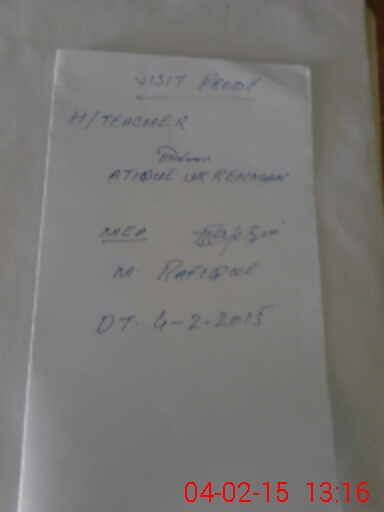 VISIT PROOF
H/TEACHER
Rehman
ATIQUE UR REHMAN
MEA
M. RAFIQUE
DT. 4-2-2015
04-02-15 13:16